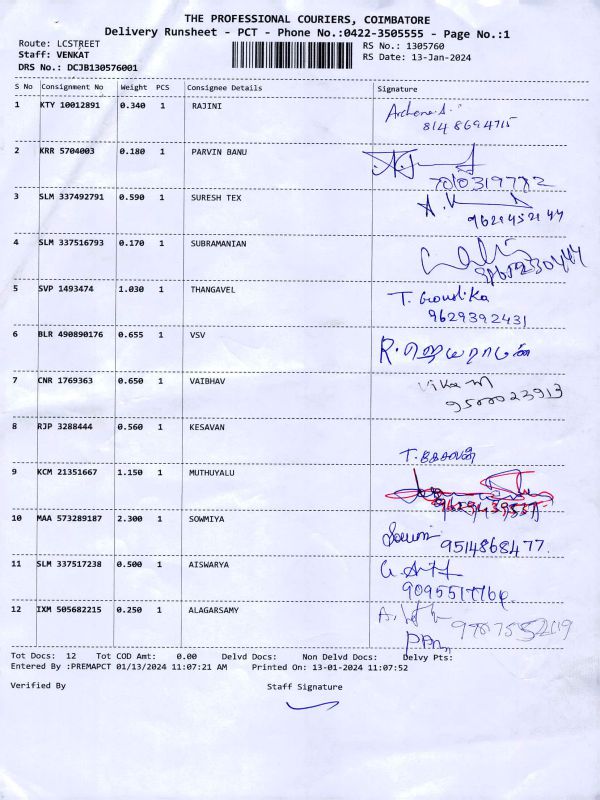 THE PROFESSIONAL COURIERS, COIMBATORE
Delivery Runsheet - PCT - Phone No.:0422-3505555 - Page No.:1
Route: LCSTREET
RS No.: 1305760
Staff: VENKAT
RS Date: 13-Jan-2024
DRS No.: DCJB130576001
S No Consignment No Weight PCS Consignee Details Signature
1 KTY 10012891 0.340 1 RAJINI
8148694715
2 KRR 5704003 0.180 1 PARVIN BANU
7010319772
3 SLM 337492791 0.590 1 SURESH TEX
9621452144
4 SLM 337516793 0.170 1 SUBRAMANIAN
5 SVP 1493474 1.030 1 THANGAVEL
T. Goudika
9629392431
6 BLR 490890176 0.655 1 VSV
R. ஜெயராமன்
7 CNR 1769363 0.650 1 VAIBHAV
9500023913
8 RJP 3288444 0.560 1 KESAVAN
T. கேசவன்
9 KCM 21351667 1.150 1 MUTHUYALU
10 MAA 573289187 2.300 1 SOWMIYA
9514868477.
11 SLM 337517238 0.500 1 AISWARYA
12 IXM 505682215 0.250 1 ALAGARSAMY
Tot Docs: 12 Tot COD Amt: 0.00 Delvd Docs: Non Delvd Docs: Delvy Pts:
Entered By :PREMAPCT 01/13/2024 11:07:21 AM Printed On: 13-01-2024 11:07:52
Verified By Staff Signature